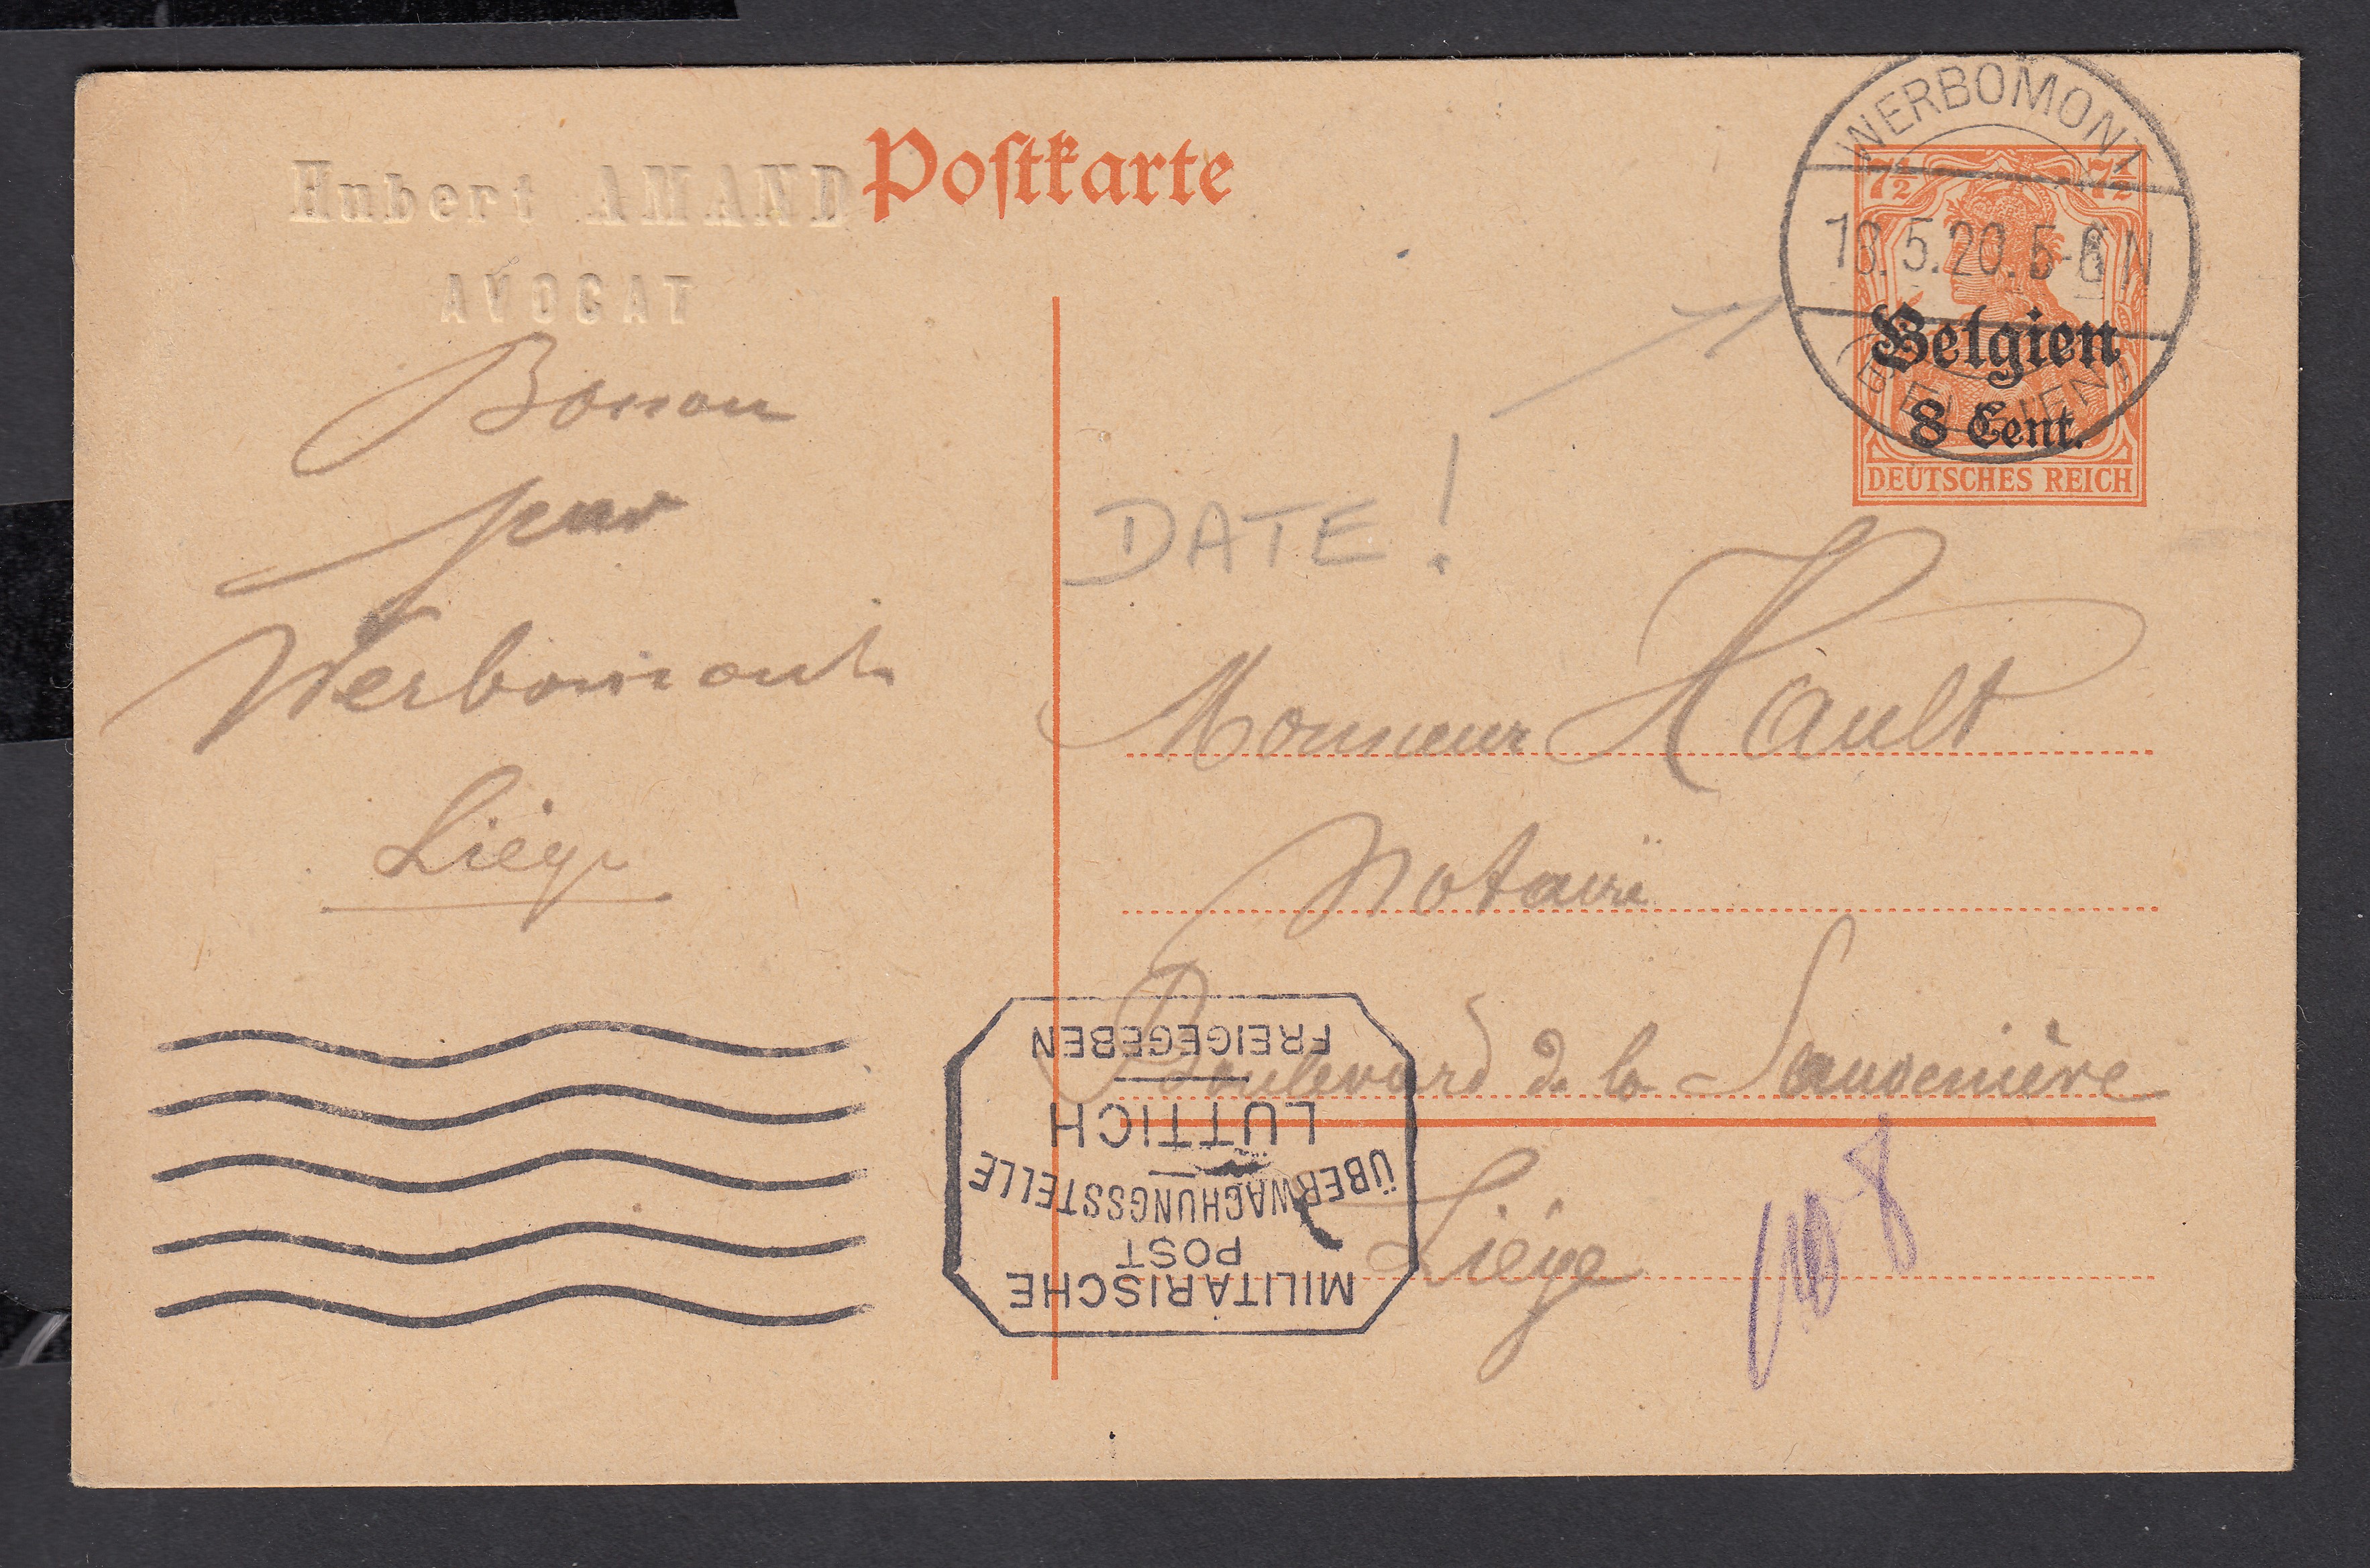 Hubert AMAND
AVOCAT
Postkarte
WERBOMONT
18.5.20.5-6N
(BELGIEN)
7½ 7½
Belgien
8 Cent.
DEUTSCHES REICH
Bosson
par
Werbomont
Liége
DATE !
Monsieur Hault
Notaire
Boulevard de la Sauvenière
Liége
MILITÄRISCHE
POST
ÜBERWACHUNGSSTELLE
LÜTTICH
FREIGEGEBEN